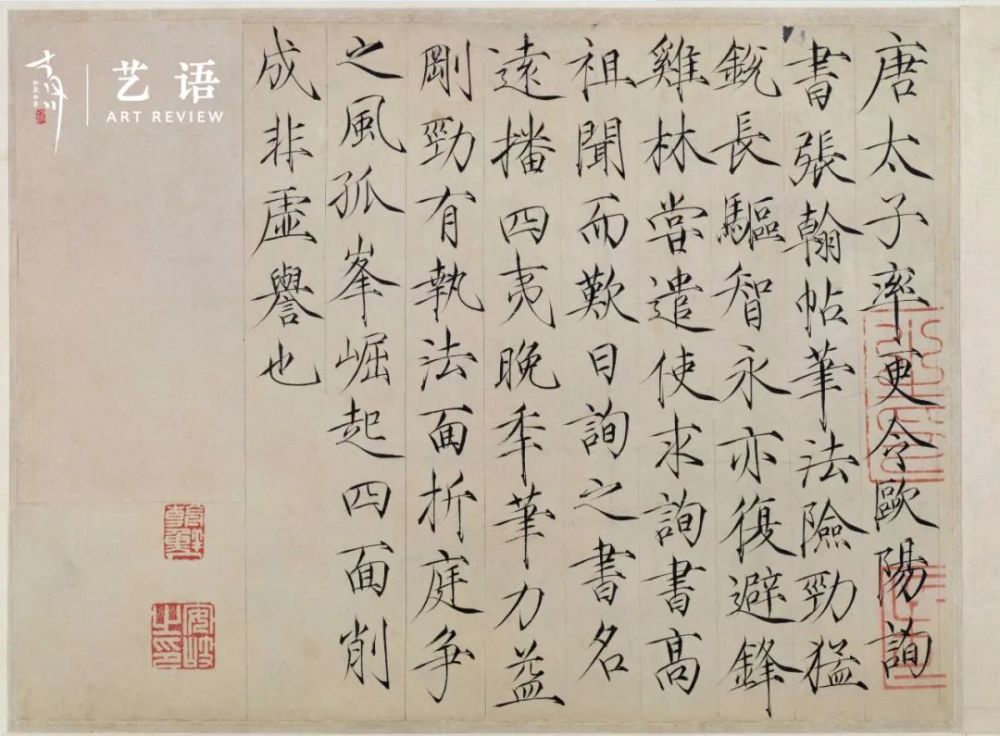 唐太子率更令歐陽詢
書張翰帖筆法險勁猛
銳長驅智永亦復避鋒
雞林嘗遣使求詢書高
祖聞而歎曰詢之書名
遠播四夷晚秊筆力益
剛勁有執法面折庭争
之風孤峯崛起四面削
成非虛譽也
安岐之印
艺语
ART REVIEW